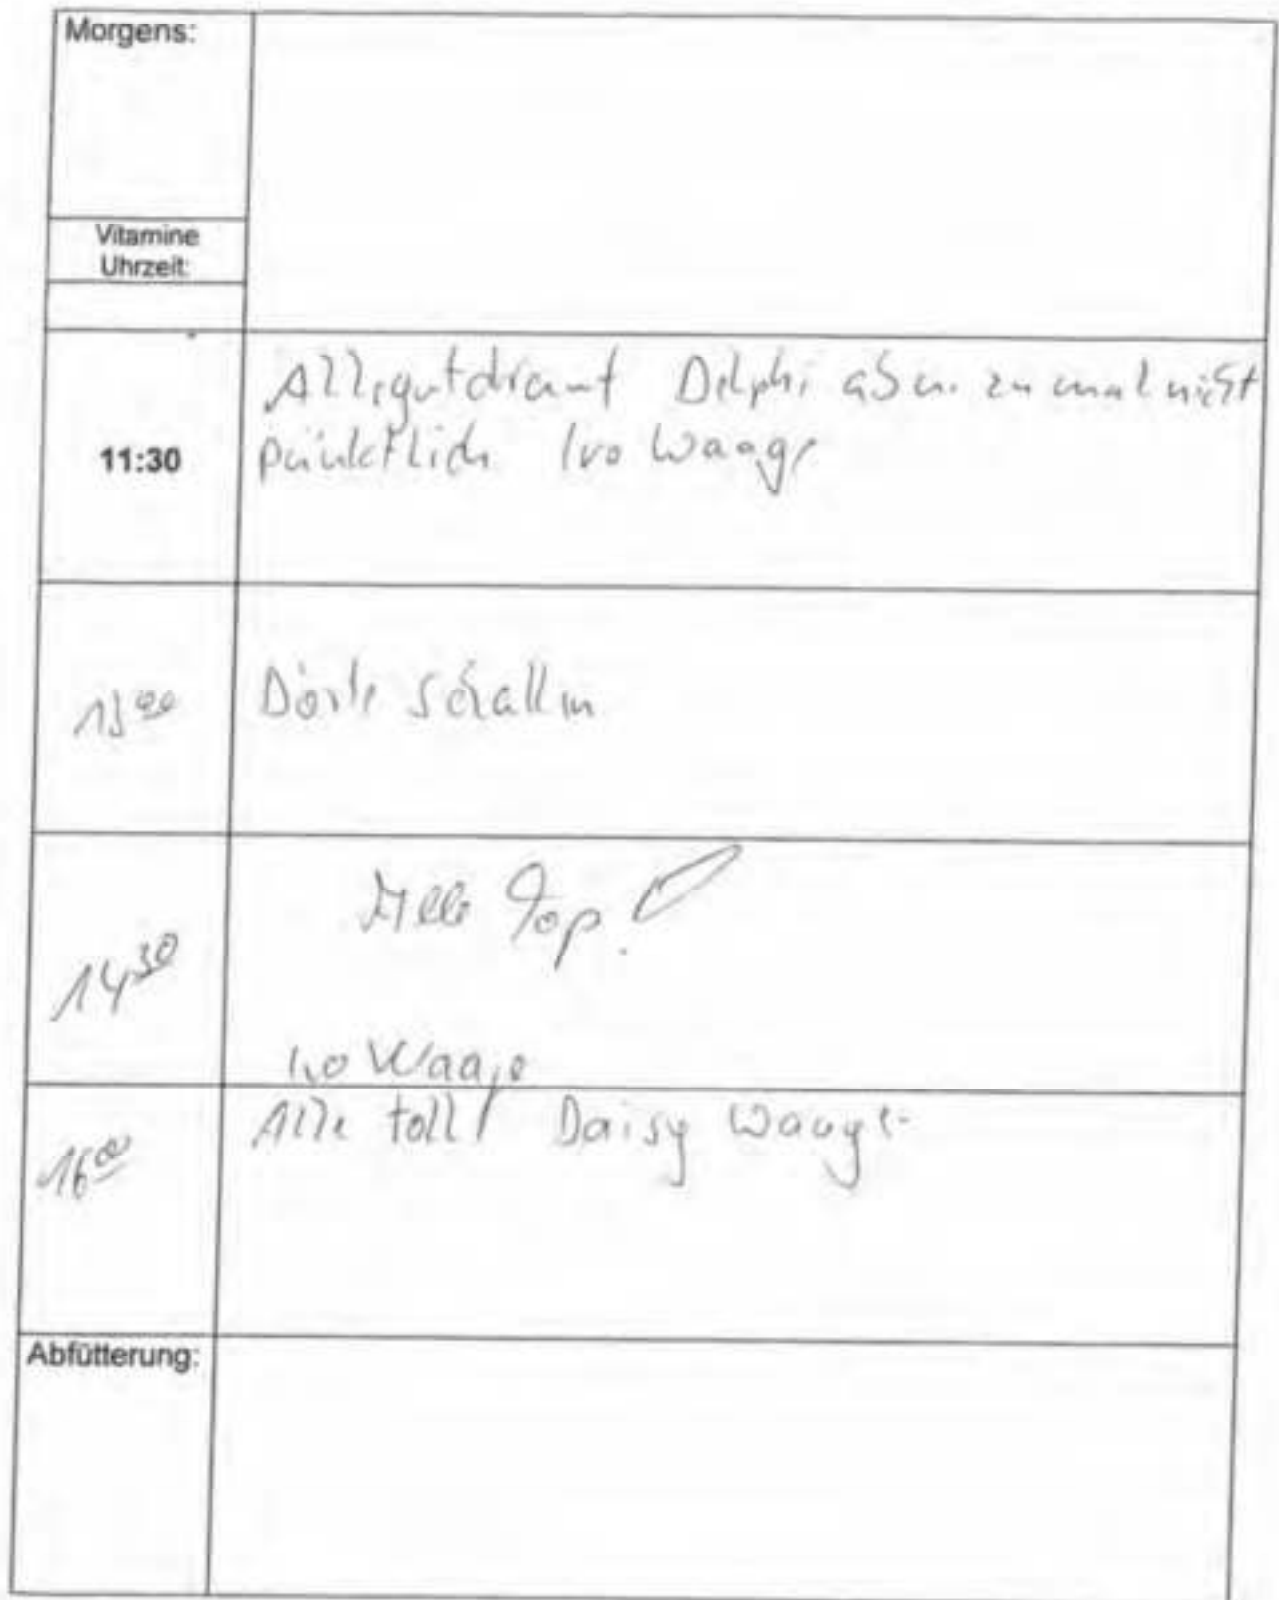 Morgens:
Vitamine
Uhrzeit:
Alle gut drauf Delphi ab u. zu mal nicht
11:30
pünktlich Ivo Waage
13 00
Dörte Schallin
Alle Top!
14 30
Ivo Waage
Alle toll! Daisy Waage
16 00
Abfütterung: